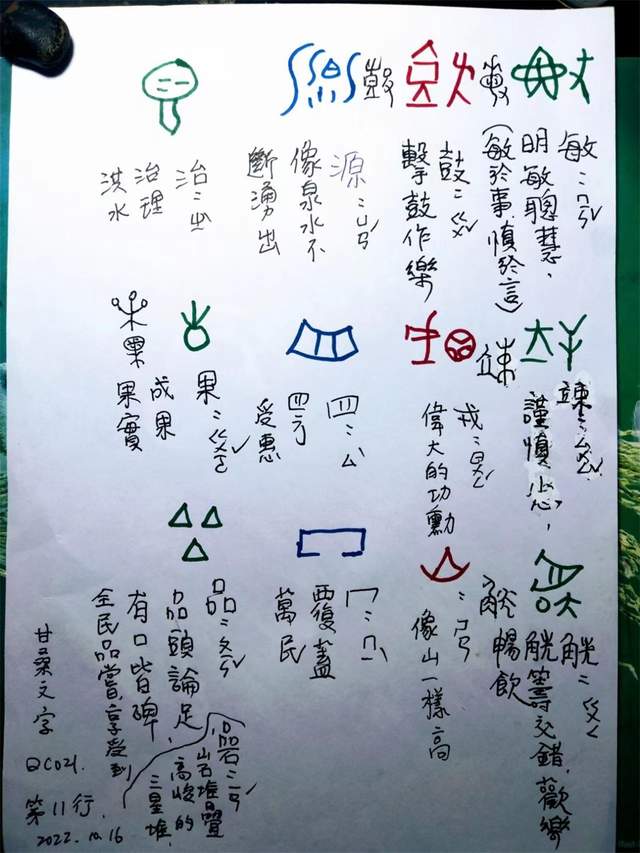 敏：ㄇㄧㄣˇ
明敏聰慧，
（敏於事，慎於言）
鼓：ㄍㄨˇ
擊鼓作樂
源：ㄩㄢ
像泉水不
斷湧出
治：ㄓ
治理
洪水
竦：ㄙㄨㄥˇ
謹慎小心，
戎：ㄖㄨㄥ
偉大的功勳
四：ㄙ
四方
受惠
果：ㄍㄨㄛˇ
成果
果實
觥：ㄍㄨㄥ
觥籌交錯，歡樂
暢飲
像山一樣高
冖：ㄇㄧ
覆蓋
萬民
品：ㄆㄧㄣˇ
品頭論足，
有口皆碑
全民品嘗，享受到
山石堆疊
高峻的
三星堆
甘桑文字
QC021.
第11行，
2022.10.16